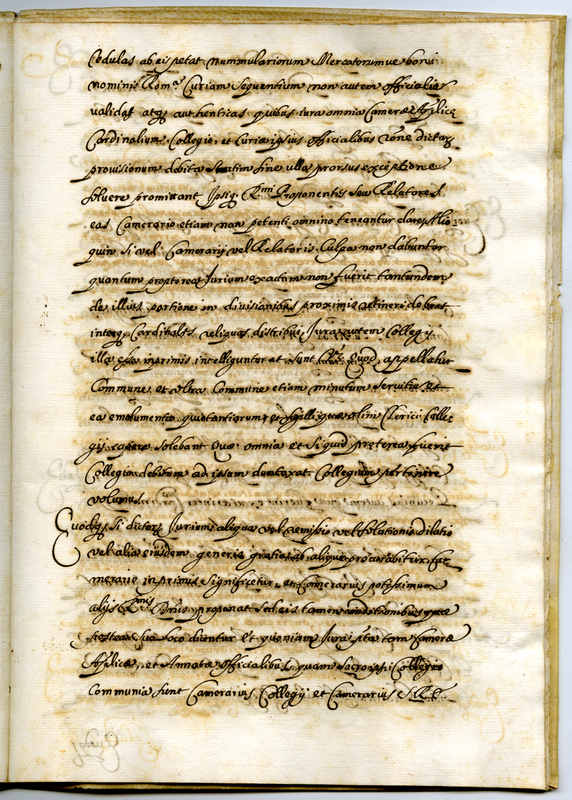 Cedulas ab eis petat nummulariorum Mercatorumve boni
nominis Rom.ᵃ Curiam Sequentium non autem officialia
validas atq; authenticas quibus iura omnia Cameræ Aplicæ
Cardinalium Collegio, et Curiæ ipsius officialibus rõne dictaꝝ
provisionum debita statim sine ulla prorsus exceptione
solvere promittant Ipsiq; Rmi Proponentes seu Relatores
eas Camerario etiam non petenti omnino teneantur dare, Alio
quin si vel Camerarij vel Relatoris Culpa non dabuntur
quantum propterea Iurium exactum non fuerit tantundem
de illius portione in divisionibus proximis retineri debeat
interq; Cardinales reliquos distribui Iura autem Collegij
illa esse inprimis intelliguntur et sunt Quod appellatur
Commune et ultra Commune etiam minutum servitium et
ea emolumenta quietantiarum, et sigilli quæ olim Clerici Colle-
gij capere solebant Quæ omnia et si quid præterea fuerit
Collegio debitum ad ipsum dumtaxat Collegium pertinere
volumus
Quodq; si dictoꝝ Iurium aliqua vel remissio vel solutionis dilatio
vel alia eiusdem generis gratia ab aliquo procurabitur Ca-
merario inprimis significetur, et Camerarius potissimum
alijs Dnis proponat sed eis tamen conditionibus quæ
suo loco dicentur Et quoniam Iura ista tam Cameræ
Aplicæ, et Annatæ officialibus, quam sacro ipsi Collegio
Communia sunt Camerarius Collegij et Camerarius S.R.E.
Quodq;